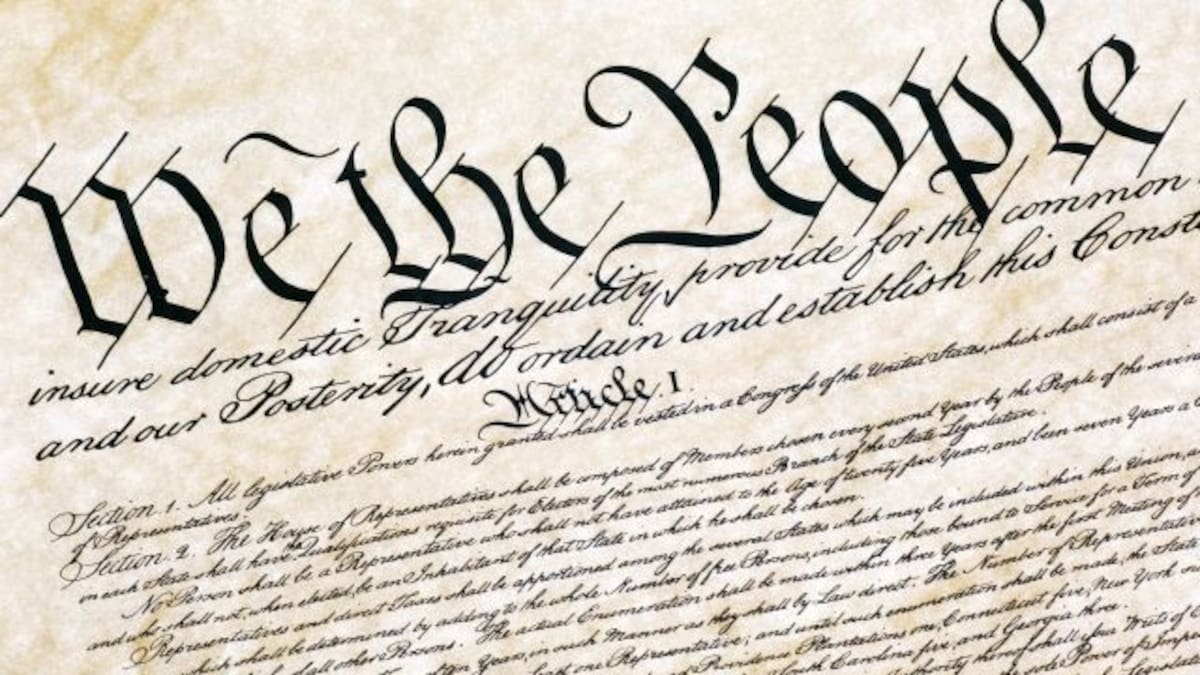 We the People
insure domestic Tranquility, provide for the common
and our Posterity, do ordain and establish this Const
Article. I.
Section. 1. All legislative Powers herein granted shall be vested in a Congress of the United States, which shall consist of a
of Representatives.
Section. 2. The House of Representatives shall be composed of Members chosen every second Year by the People of the several
in each State shall have the Qualifications requisite for Electors of the most numerous Branch of the State Legislature.
No Person shall be a Representative who shall not have attained to the Age of twenty five Years, and been seven Years a
and who shall not, when elected, be an Inhabitant of that State in which he shall be chosen.
Representatives and direct Taxes shall be apportioned among the several States which may be included within this Union,
which shall be determined by adding to the whole Number of free Persons, including those bound to Service for a Term of
all other Persons. The actual Enumeration shall be made within three Years after the first Meeting of
ten Years, in such Manner as they shall by Law direct. The Number of Representatives
least one Representative; and until such enumeration shall be made, the State
Providence Plantations one, Connecticut five, New York
South Carolina five, and Georgia three.
Authority thereof shall issue Writs of
sole Power of